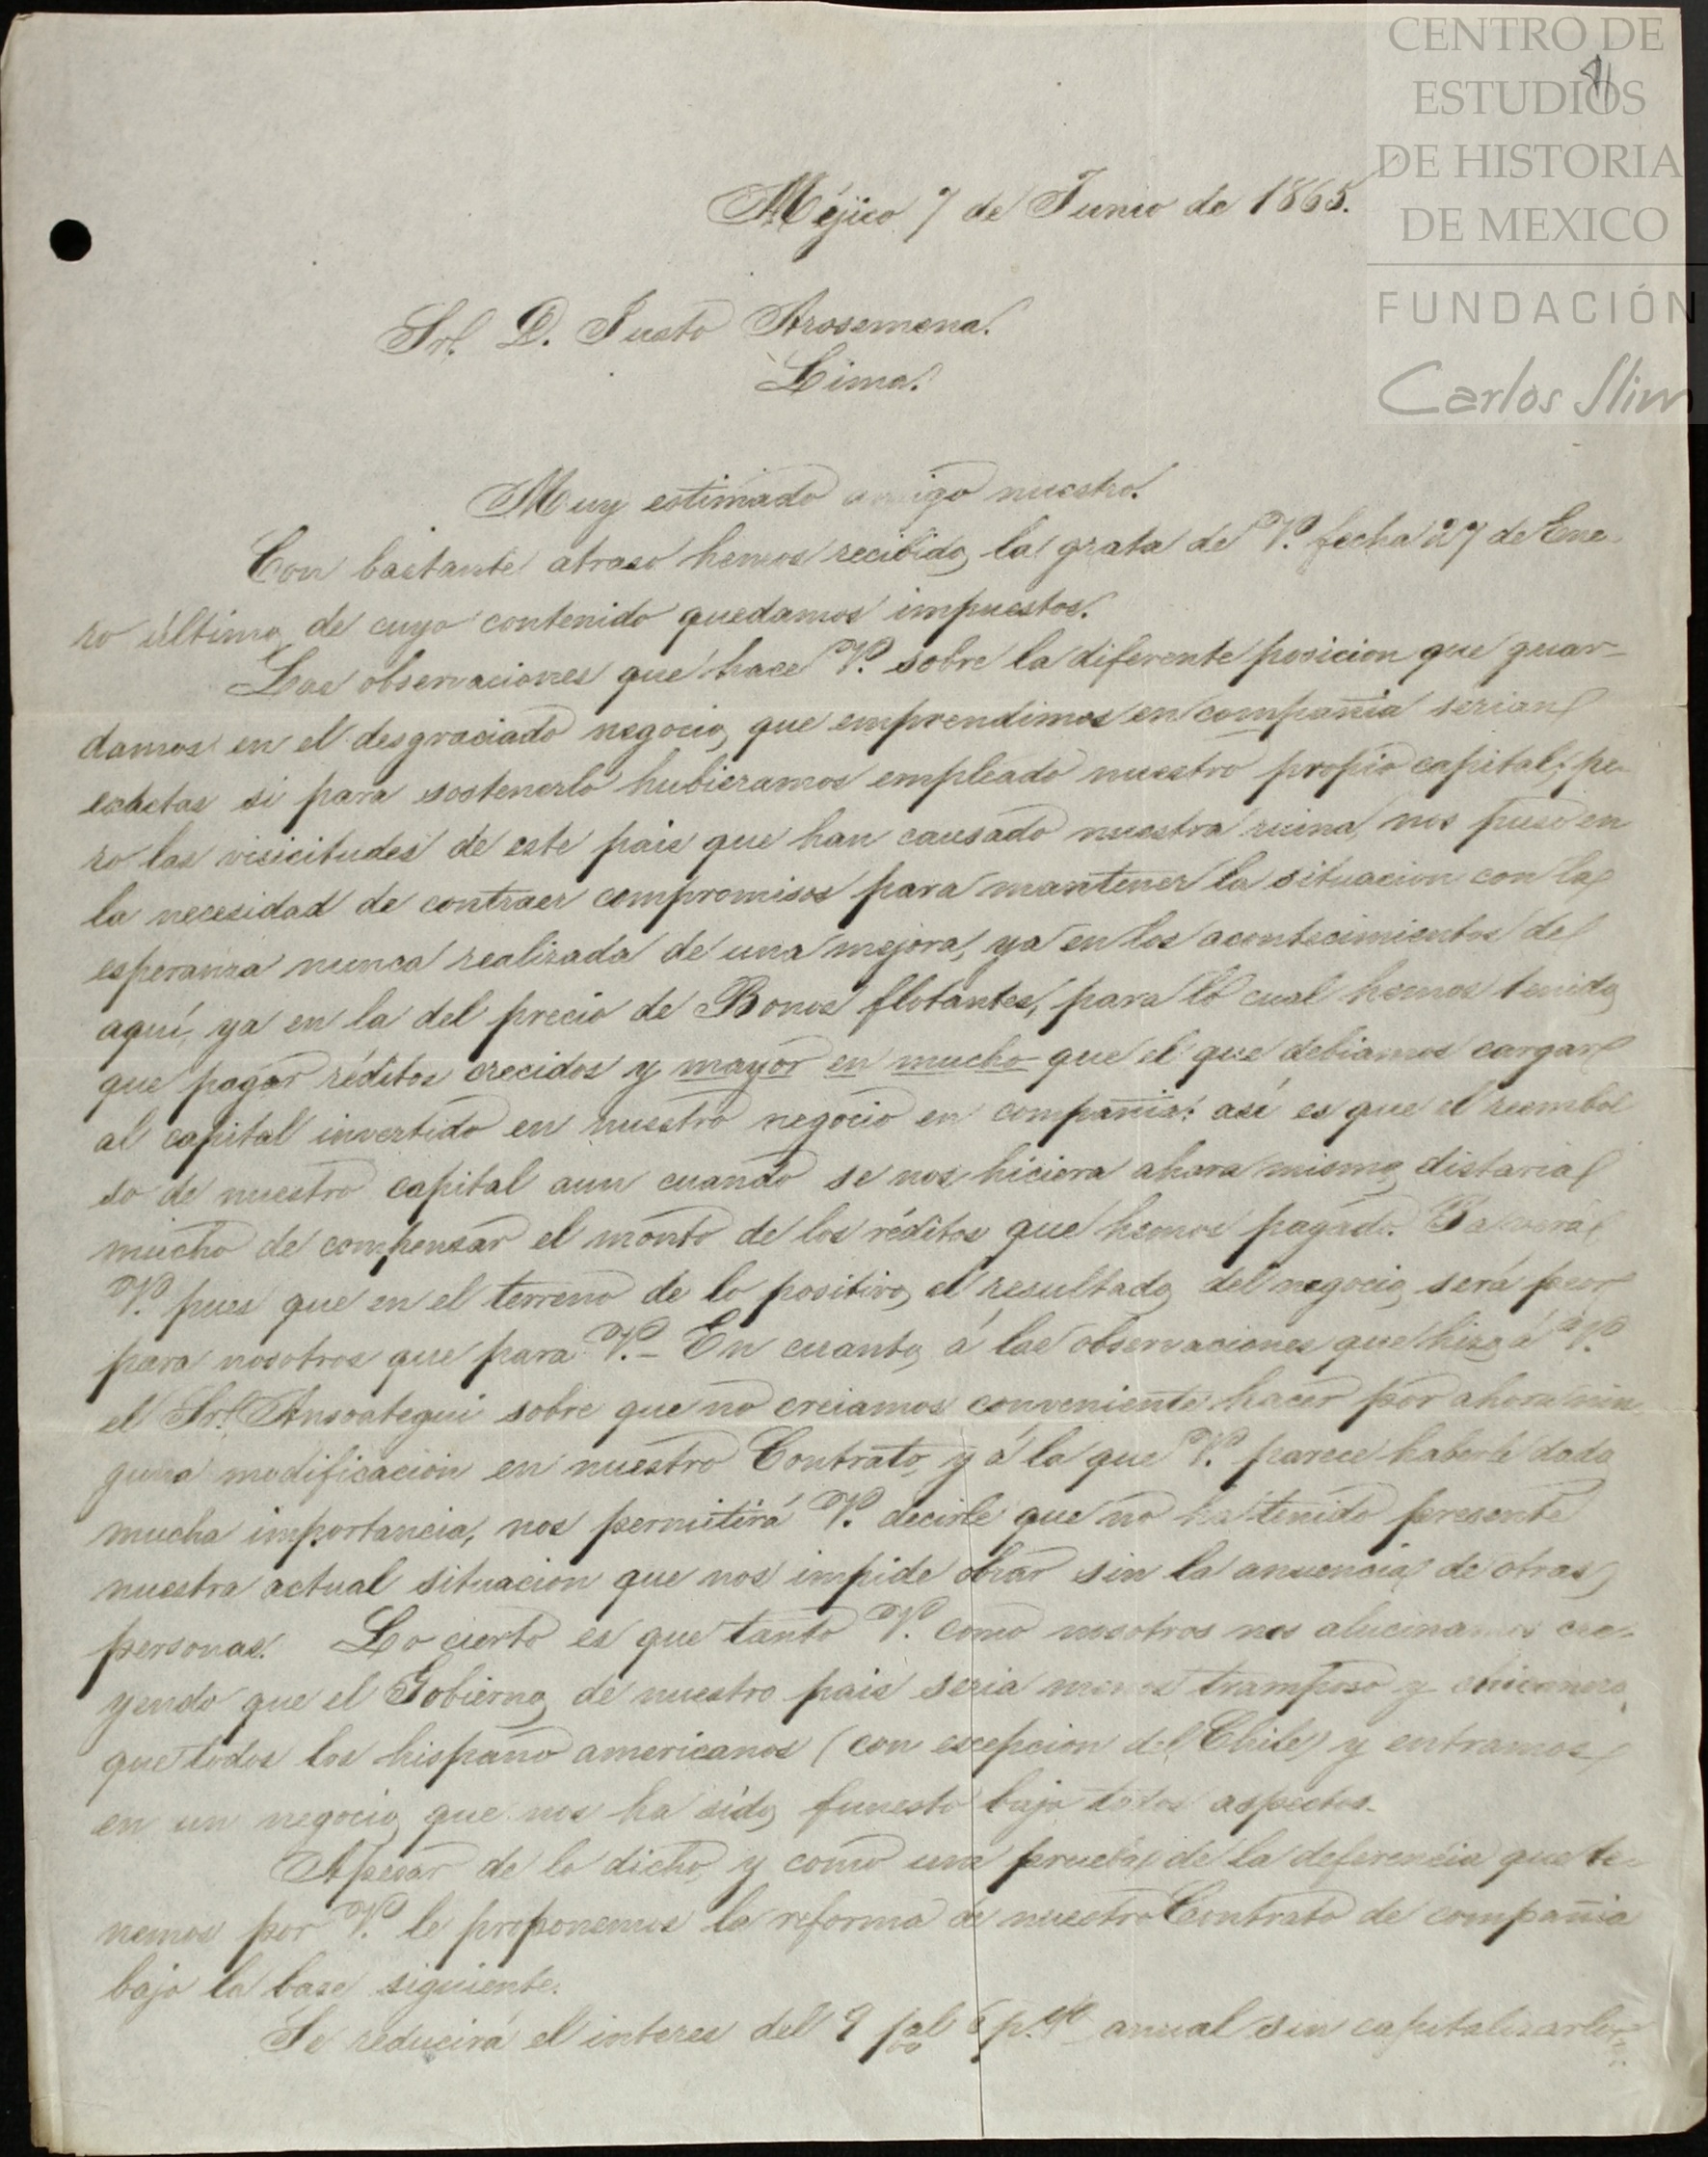 CENTRO DE
ESTUDIOS
DE HISTORIA
DE MEXICO
FUNDACIÓN
Carlos Slim
Méjico 7 de Junio de 1865.
Sr. D. Justo Arosemena.
Lima.
Muy estimado amigo nuestro.
Con bastante atraso hemos recibido la grata de V. fecha 27 de Ene-
ro último, de cuyo contenido quedamos impuestos.
Las observaciones que hace V. sobre la diferente posicion que guar-
damos en el desgraciado negocio, que emprendimos en compañia serian
exactas si para sostenerlo hubieramos empleado nuestro propio capital; pe-
ro las visicitudes de este pais que han causado nuestra ruina, nos puso en
la necesidad de contraer compromisos para mantener la situacion con la
esperanza nunca realizada de una mejora, ya en los acontecimientos de
aquí, ya en la del precio de Bonos flotantes, para lo cual hemos tenido
que pagar réditos crecidos y mayor en mucho que el que debiamos cargar
al capital invertido en nuestro negocio en compañia: así es que el reembol
so de nuestro capital aun cuando se nos hiciera ahora mismo, distaria
mucho de compensar el monto de los réditos que hemos pagado. Ya verá
V. pues que en el terreno de lo positivo, el resultado del negocio será peor
para nosotros que para V. – En cuanto á las observaciones que hizo á V.
el Sr. Ansoategui sobre que no creiamos conveniente hacer por ahora nin
guna modificacion en nuestro Contrato, y á la que V. parece haberle dado
mucha importancia, nos permitirá V. decirle que no ha tenido presente
nuestra actual situacion que nos impide obrar sin la anuencia de otras
personas. Lo cierto es que tanto V. como nosotros nos alucinamos cre-
yendo que el Gobierno de nuestro pais seria menos tramposo y chicanero
que todos los hispano americanos (con escepcion del Chile) y entramos
en un negocio que nos ha sido funesto bajo todos aspectos.
Apesar de lo dicho, y como una prueba de la deferencia que te-
nemos por V. le proponemos la reforma de nuestro Contrato de compañia
bajo la base siguiente.
Se reducirá el interes del 9 p% al 6 p.% anual sin capitalizarlo